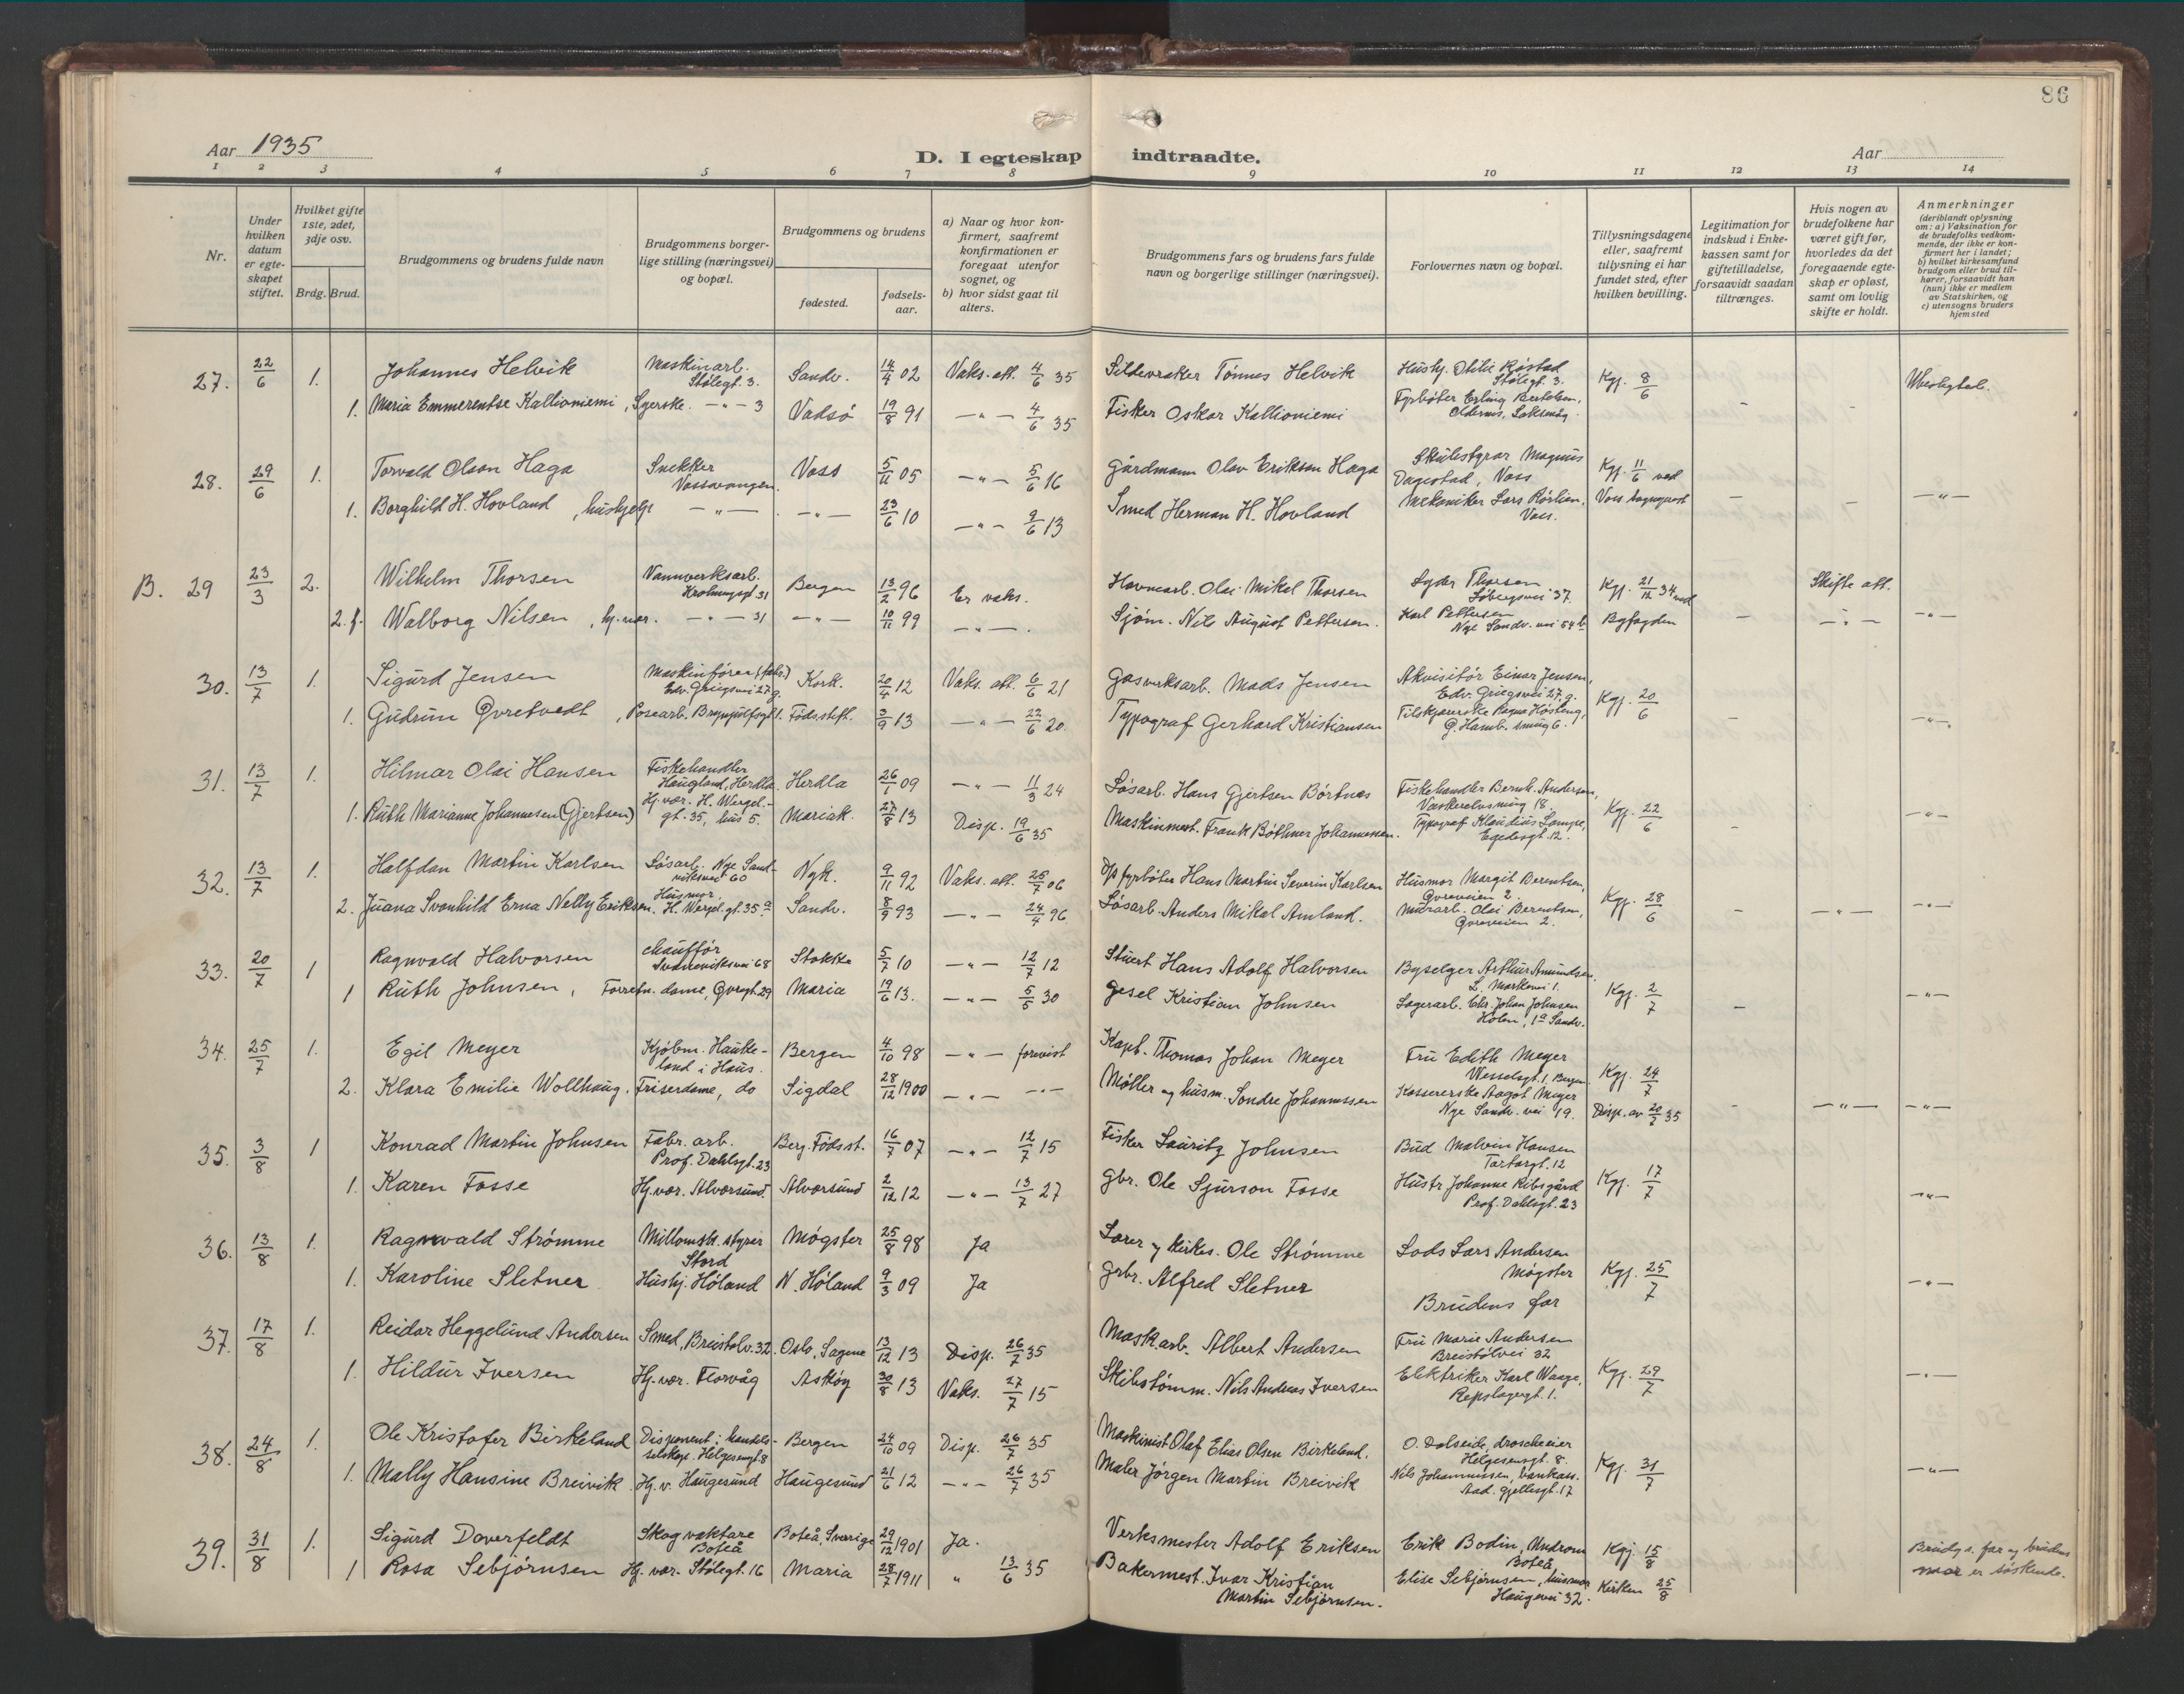 86
Aar 1935
D. I egteskap indtraadte.
Aar
1 2 3 4 5 6 7 8 9 10 11 12 13 14
Nr.
Under hvilken datum er egteskapet stiftet.
Hvilket gifte 1ste, 2det, 3dje osv.
Brdg. Brud.
Brudgommens og brudens fulde navn
Brudgommens borgerlige stilling (næringsvei) og bopæl.
Brudgommens og brudens
fødested.
fødselsaar.
a) Naar og hvor konfirmert, saafremt konfirmationen er foregaat utenfor sognet, og
b) hvor sidst gaat til alters.
Brudgommens fars og brudens fars fulde navn og borgerlige stillinger (næringsvei).
Forlovernes navn og bopæl.
Tillysningsdagene eller, saafremt tillysning ei har fundet sted, efter hvilken bevilling.
Legitimation for indskud i Enkekassen samt for giftetilladelse, forsaavidt saadan tiltrænges.
Hvis nogen av brudefolkene har været gift før, hvorledes da det foregaaende egteskap er opløst, samt om lovlig skifte er holdt.
Anmerkninger
(deriblandt oplysning om: a) Vaksination for de brudefolks vedkommende, der ikke er konfirmert her i landet; b) hvilket kirkesamfund brudgom eller brud tilhører, forsaavidt han (hun) ikke er medlem av Statskirken, og c) utensogns bruders hjemsted
27. 22/6 1. Johannes Helvik Maskinarb. Stølegt. 3. Sandv. 14/4 02 Vaks. att. 4/6 35 Sildevraker Tønnes Helvik Hushj. Otilie Røstad Stølegt. 3. Kgj. 8/6 Ubeslægtet.
1. Maria Emmerentse Kallioniemi, Syerske. —"— 3 Vadsø 19/8 91 —"— 4/6 35 Fisker Oskar Kallioniemi Fyrbøter Erling Bertelsen, – –
28. 29/6 1. Torvald Olson Haga Snekker Vossevangen. Voss 5/11 05 —"— 5/6 16 Gårdmann Olav Erikson Haga Skulestyrar Magnus Dagestad, Voss Kgj. 11/6 ved
1. Borghild H. Hovland, hushjelp —"— —"— 23/6 10 —"— 9/6 13 Smed Herman H. Hovland Mekaniker Lars Røslien, Voss. Voss – – —"—
B. 29 23/3 2. Wilhelm Thorsen Vannverksarb. Krohnengt. 31 Bergen 13/2 96 Er vaks. Havnearb. Olai Mikel Thorsen Lyder Thorsen Søbergsvei 37. Kgj. 21/12 34 ved Skifte att.
2. f. Walborg Nilsen, hj.vær. —"— 31 —"— 10/11 99 —"—. Sjøm. Nils August Pettersen. Karl Pettersen Nye Sandv. vei 54 b Byfogden – —"— —"—
30. 13/7 1. Sigurd Jensen Maskinfører (fabr.) Edv. Griegsvei 27 g. Kork. 20/4 12 Vaks. att. 6/6 21 Gasverksarb. Mads Jensen Akvisitør Einar Jensen, Edv. Griegsvei 27 g. Kgj. 20/6
1. Gudrun Qvretvedt, Posearb. Brynjulfsgt 1. Føds.stift. 3/9 13 —"— 22/6 20. Typograf Gerhard Kristiansen Tilskjærerske Ragna Høsteng, G. Hamb. smug 6. – —"—
31. 13/7 1. Hilmar Olai Hansen Fiskehandler Haugland, Herdla. Herdla 26/1 09 —"— 11/3 24 Løsarb. Hans Gjertsen Børtnes Fiskehandler Bernh. Andersen, Vaskerelvsmug 18. Kgj. 22/6
1. Ruth Marianne Johannesen (Gjertsen) Hj. vær. H. Wergel.gt. 35, hus 5. Mariak. 27/8 13 Disp. 19/6 35 Maskinmest. Frank Bøthner Johannesen. Typograf Klaudius Lampe, Egedesgt. 12. – —"—
32. 13/7 1. Halfdan Martin Karlsen Løsarb. Nye Sandviksvei 60 Nyk. 9/11 92 Vaks. att. 26/7 06 D/s fyrbøter Hans Martin Severin Karlsen Husmor Margit Berentsen, Qvreveien 2. Kgj. 28/6
2. Juana Svanhild Erna Nelly Eriksen. Husmor H. Wergel. gt. 35 a Sandv. 8/9 93 —"— 24/4 96 Løsarb. Anders Mikal Amland. Murarb. Olai Berentsen, Qvreveien 2. – —"— —"—
33. 20/7 1 Ragnvald Halvorsen chauffør Svaneviksvei 68 Stokke 5/7 10 —"— 12/7 12 Stuert Hans Adolf Halvorsen Byselger Arthur Amundsen, L. Markevei 1. Kgj. 2/7
1 Ruth Johnsen, Forretn. dame, Qvregt. 29 Maria 19/6 13. —"— 5/5 30 Gesel Kristian Johnsen Lagerarb. Chr. Johan Johnsen Holen, 1 a Sandv. – —"—
34. 25/7 1. Egil Meyer Kjøbm. Haukeland i Haus. Bergen 4/10 98 —"— forevist Kapt. Thomas Johan Meyer Fru Edith Meyer Wesselsgt. 1, Bergen Kgj. 24/7
2. Klara Emilie Wollhaug. Friserdame, do Sigdal 28/12 1900 —"— —"— Møller og husm. Sondre Johannessen Kassererske Aagot Meyer Nye Sandv. vei 19. Disp. av 20/7 35 – —"— —"—
35. 3/8 1 Konrad Martin Johnsen Fabr. arb. Prof. Dahlsgt. 23 Berg. Fødsst. 16/7 07 —"— 12/7 15 Fisker Lauritz Johnsen Bud Malvin Hansen Tartargt. 12 Kgj. 17/7
1. Karen Fosse Hj.vær. Alversund. Alversund 2/12 12 —"— 13/7 27 Gbr. Ole Sjurson Fosse Hustr Johanne Ribsgård Prof. Dahlsgt. 23 —"—
36. 13/8 1. Ragnvald Strømme Millomsk. styrer Stord Møgster 25/8 98 Ja Lærer og kirkes. Ole Strømme Lods Lars Andersen Møgster Kgj. 25/7
1. Karoline Sletner Hushj. Høland N. Høland 9/3 09 Ja Grbr. Alfred Sletner Brudens far —"—
37. 17/8 1. Reidar Heggelund Andersen Smed, Breistølv. 32. Oslo, Sagene 13/12 13 Disp. 26/7 35 Mask.arb. Albert Andersen Fru Marie Andersen Breistølvei 32 Kgj. 29/7
1. Hildur Iversen Hj. vær. Florvåg Askøy 30/8 13 Vaks. 27/7 15 Skibstømm. Nils Andreas Iversen Elektriker Karl Waage, Repslagergt. 1. —"—
38. 24/8 1. Ole Kristofer Birkeland Disponent i handelsselskap. Helgesensgt. 8 Bergen 24/10 09 Disp. 26/7 35 Maskinist Olaf Elias Olsen Birkeland. O. Dalseide, droscheeier Helgesensgt. 8. Kgj. 31/7
1. Mally Hansine Breivik Hj. v. Haugesund Haugesund 21/6 12 —"— 26/7 35 Maler Jørgen Martin Breivik Nils Johannessen, bankass. Aad. Gjellesgt. 17 —"—
39. 31/8 1. Sigurd Doverfeldt Skogvaktare Boteå Boteå, Sverige 29/12 1901 Ja. Verksmester Adolf Eriksen Erik Bodin, Undrom Boteå Kgj. 15/8 Brudg.s. far og brudens
1 Rosa Sebjørnsen Hj. vær. Stølegt. 16 Maria 28/7 1911 " 13/6 35 Bakermest. Ivar Kristian Martin Sebjørnsen. Elise Sebjørnsen, husmor Haugevei 32. Kirken 25/8 mor er søskende.